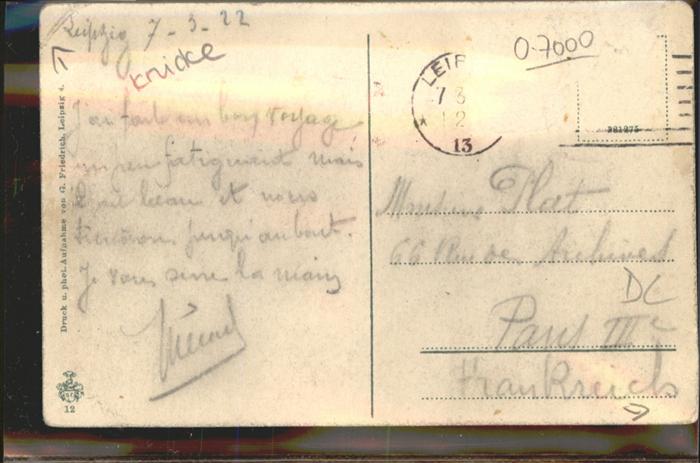 Leipzig 7-3-22
Knicke
J'ai fait un bon voyage
un peu fatiguant mais
beau et nous
tiendrons jusqu'au bout.
Je vous serre la main
Druck u. phot. Aufnahme von G. Friedrich, Leipzig 4.
12
0-7000
LEIP
7 3
12
* 13
281275
Monsieur Plat
66 Rue des Archives
DC
Paris IIIe
Frankreich